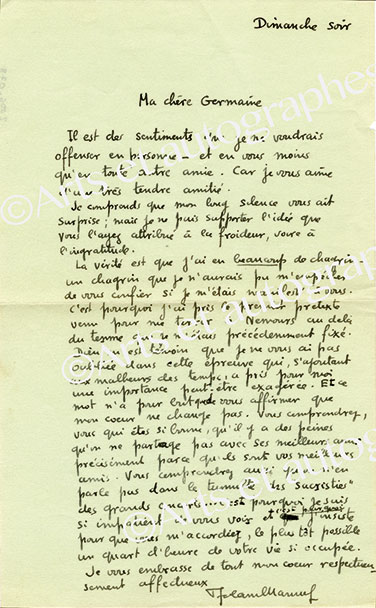 Dimanche soir
Ma chère Germaine
Il est des sentiments que je ne voudrais
offenser en personne – et en vous moins
qu'en tout autre amie. Car je vous aime
d'une très tendre amitié.
Je comprends que mon long silence vous ait
surprise ; mais je ne puis supporter l'idée que
vous l'ayez attribué à la froideur, voire à
l'ingratitude.
La vérité est que j'ai eu beaucoup de chagrin,
un chagrin que je n'aurais pu m'empêcher
de vous confier si je m'étais manifesté à vous.
C'est pourquoi j'ai pris le premier prétexte
venu pour me terrer à Nemours au delà
du terme que je m'étais précédemment fixé.
Dieu m'est témoin que je ne vous ai pas
oubliée dans cette épreuve qui, s'ajoutant
aux malheurs des temps, a pris pour moi
une importance peut-être exagérée. Et ce
mot n'a pour but que de vous affirmer que
mon cœur ne change pas. Vous comprendrez,
vous qui êtes si bonne, qu'il y a des peines
qu'on ne partage pas avec ses meilleurs amis
précisément parce qu'ils sont vos meilleurs
amis. Vous comprendrez aussi qu'on n'en
parle pas dans le tumulte des "sacristies"
des grands concerts. C'est pourquoi je suis
si impatient de vous voir et c'est pourquoi j'insiste
pour que vous m'accordiez, le plus tôt possible
un quart d'heure de votre vie si occupée.
Je vous embrasse de tout mon cœur respectueu-
sement affectueux
Roland-Manuel
© Arts et autographes